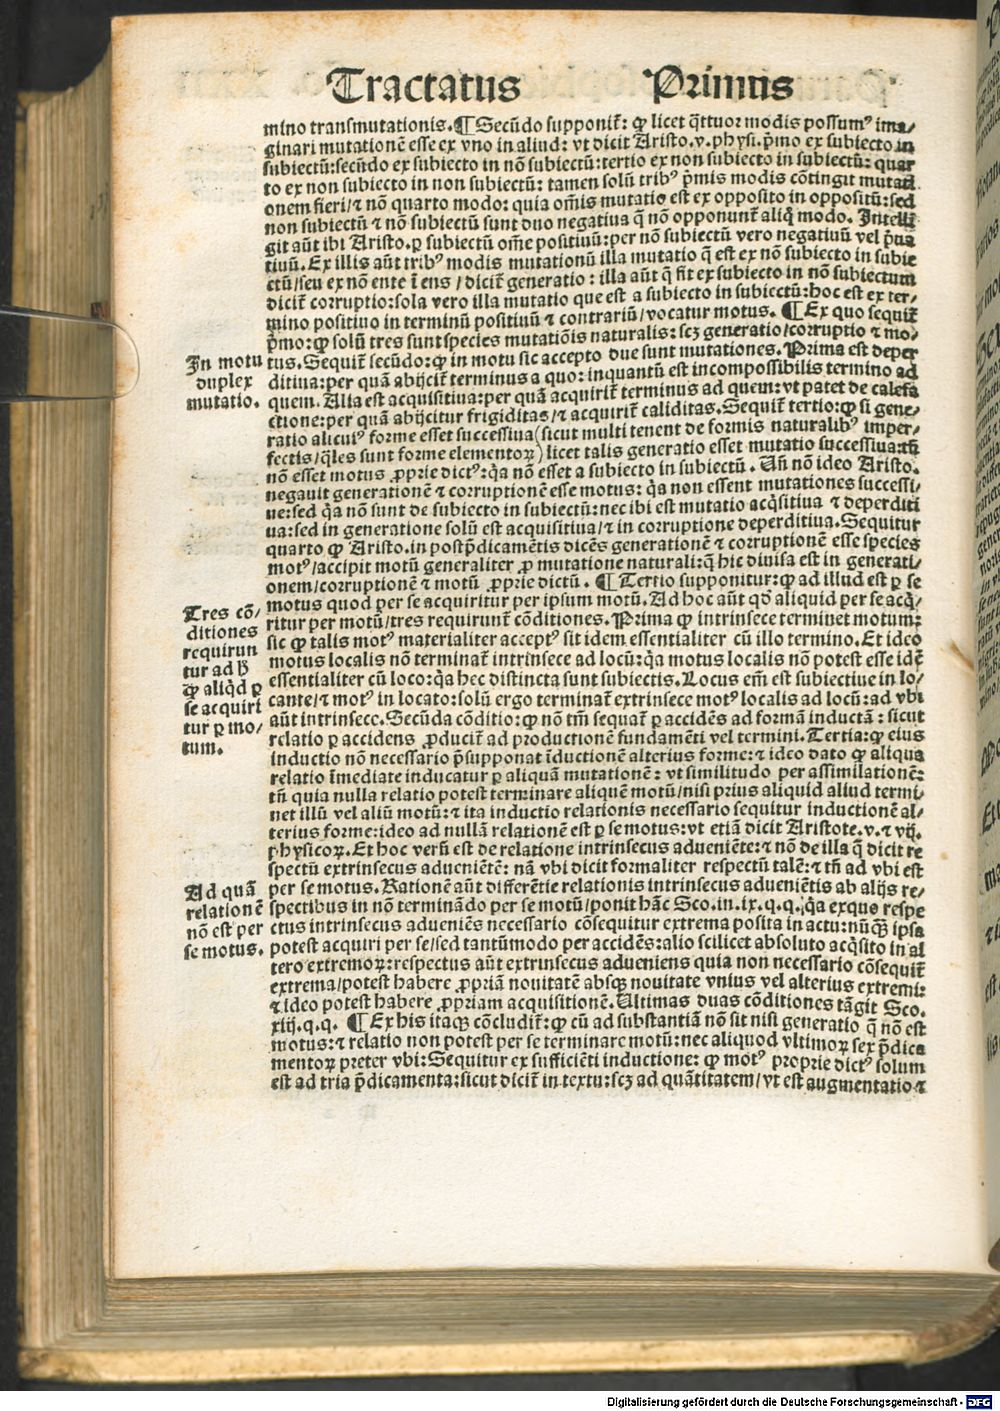 Tractatus Primus
mino transmutationis.¶Secūdo supponit̄: ꝙ licet q̄ttuor modis possumꝰ ima/
ginari mutationē esse ex vno in aliud: vt dicit Aristo.v.physi.p̄mo ex subiecto in
subiectū:secūdo ex subiecto in nō subiectū:tertio ex non subiecto in subiectū: quar
to ex non subiecto in non subiectū: tamen solū tribꝰ p̄mis modis cōtingit mutati
onem fieri/⁊ nō quarto modo: quia om̄is mutatio est ex opposito in oppositū:sed
non subiectū ⁊ nō subiectū sunt duo negatiua q̄ nō opponunt̄ aliq̄ modo. Intelli
git aūt ibi Aristo.ꝑ subiectū om̄e positiuū:per nō subiectū vero negatiuū vel p̄ua
tiuū. Ex illis aūt tribꝰ modis mutationū illa mutatio q̄ est ex nō subiecto in subie
ctū/seu ex nō ente ī ens / dicit̄ generatio : illa aūt q̄ fit ex subiecto in nō subiectum
dicit̄ corruptio:sola vero illa mutatio que est a subiecto in subiectū:hoc est ex ter/
mino positiuo in terminū positiuū ⁊ contrariū/vocatur motus. ¶Ex quo sequit̄
p̄mo:ꝙ solū tres sunt species mutatiōis naturalis: scꝫ generatio/corruptio ⁊ mo/
In motu
duplex
mutatio.
tus.Sequit̄ secūdo:ꝙ in motu sic accepto due sunt mutationes. Prima est deper
ditiua:per quā abijcit̄ terminus a quo: inquantū est incompossibilis termino ad
quem. Alia est acquisitiua:per quā acquirit̄ terminus ad quem:vt patet de calefa
ctione:per quā abijcitur frigiditas/⁊ acquirit̄ caliditas.Sequit̄ tertio:ꝙ si gene/
ratio alicuiꝰ forme esset successiua(sicut multi tenent de formis naturalibꝰ imper/
fectis/q̄les sunt forme elementoꝝ) licet talis generatio esset mutatio successiua:tn̄
nō esset motus ꝓprie dictꝰ:q̄a nō esset a subiecto in subiectū. Un̄ nō ideo Aristo.
negauit generationē ⁊ corruptionē esse motus: q̄a non essent mutationes successi/
ue:sed q̄a nō sunt de subiecto in subiectū:nec ibi est mutatio acq̄sitiua ⁊ deperditi
ua:sed in generatione solū est acquisitiua/⁊ in corruptione deperditiua.Sequitur
quarto ꝙ Aristo.in postp̄dicamētis dicēs generationē ⁊ corruptionē esse species
motꝰ/accipit motū generaliter ꝓ mutatione naturali:q̄ hic diuisa est in generati/
onem/corruptionē ⁊ motū ꝓprie dictū. ¶Tertio supponitur:ꝙ ad illud est ꝑ se
motus quod per se acquiritur per ipsum motū. Ad hoc aūt qd̄ aliquid per se acq̄/
Tres cō/
ditiones
requirun
tur ad ħ
ꝙ aliq̄d ꝑ
se acquiri
tur ꝑ mo/
tum.
ritur per motū/tres requirunt̄ cōditiones. Prima ꝙ intrinsece terminet motum:
sic ꝙ talis motꝰ materialiter acceptꝰ sit idem essentialiter cū illo termino.Et ideo
motus localis nō terminat̄ intrinsece ad locū:q̄a motus localis nō potest esse idē
essentialiter cū loco:q̄a hec distincta sunt subiectis.Locus em̄ est subiectiue in lo/
cante/⁊ motꝰ in locato:solū ergo terminat̄ extrinsece motꝰ localis ad locū:ad vbi
aūt intrinsece.Secūda cōditio:ꝙ nō tm̄ sequat̄ ꝑ accidēs ad formā inductā: sicut
relatio ꝑ accidens ꝓducit̄ ad productionē fundamēti vel termini.Tertia:ꝙ eius
inductio nō necessario p̄supponat īductionē alterius forme:⁊ ideo dato ꝙ aliqua
relatio īmediate inducatur ꝑ aliquā mutationē: vt similitudo per assimilationē:
tn̄ quia nulla relatio potest terminare aliquē motū/nisi prius aliquid aliud termi/
net illū vel aliū motū:⁊ ita inductio relationis necessario sequitur inductionē al/
terius forme:ideo ad nullā relationē est ꝑ se motus:vt etiā dicit Aristote.v.⁊ vij.
physicoꝝ.Et hoc verū est de relatione intrinsecus adueniēte:⁊ nō de illa q̄ dicit re
spectū extrinsecus aduenientē: nā vbi dicit formaliter respectū talē:⁊ tn̄ ad vbi est
Ad quā
relationē
nō est per
se motus.
per se motus.Rationē aūt differētie relationis intrinsecus adueniētis ab alijs re/
spectibus in nō terminādo per se motū/ponit hāc Sco.in.ix.q.q.q̄a exquo respe
ctus intrinsecus adueniēs necessario cōsequitur extrema posita in actu:nūq̄ꝫ ipsa
potest acquiri per se/sed tantūmodo per accidēs:alio scilicet absoluto acq̄sito in al
tero extremoꝝ:respectus aūt extrinsecus adueniens quia non necessario cōsequit̄
extrema/potest habere ꝓpriā nouitatē absqꝫ nouitate vnius vel alterius extremi:
⁊ ideo potest habere ꝓpriam acquisitionē. Ultimas duas cōditiones tāgit Sco.
xiij.q.q. ¶Ex his itaqꝫ cōcludit̄:ꝙ cū ad substantiā nō sit nisi generatio q̄ nō est
motus:⁊ relatio non potest per se terminare motū:nec aliquod vltimoꝝ sex p̄dica
mentoꝝ preter vbi:Sequitur ex sufficiēti inductione: ꝙ motꝰ proprie dictꝰ solum
est ad tria p̄dicamenta:sicut dicit̄ in textu:scꝫ ad quātitatem/vt est augmentatio ⁊
Digitalisierung gefördert durch die Deutsche Forschungsgemeinschaft - DFG